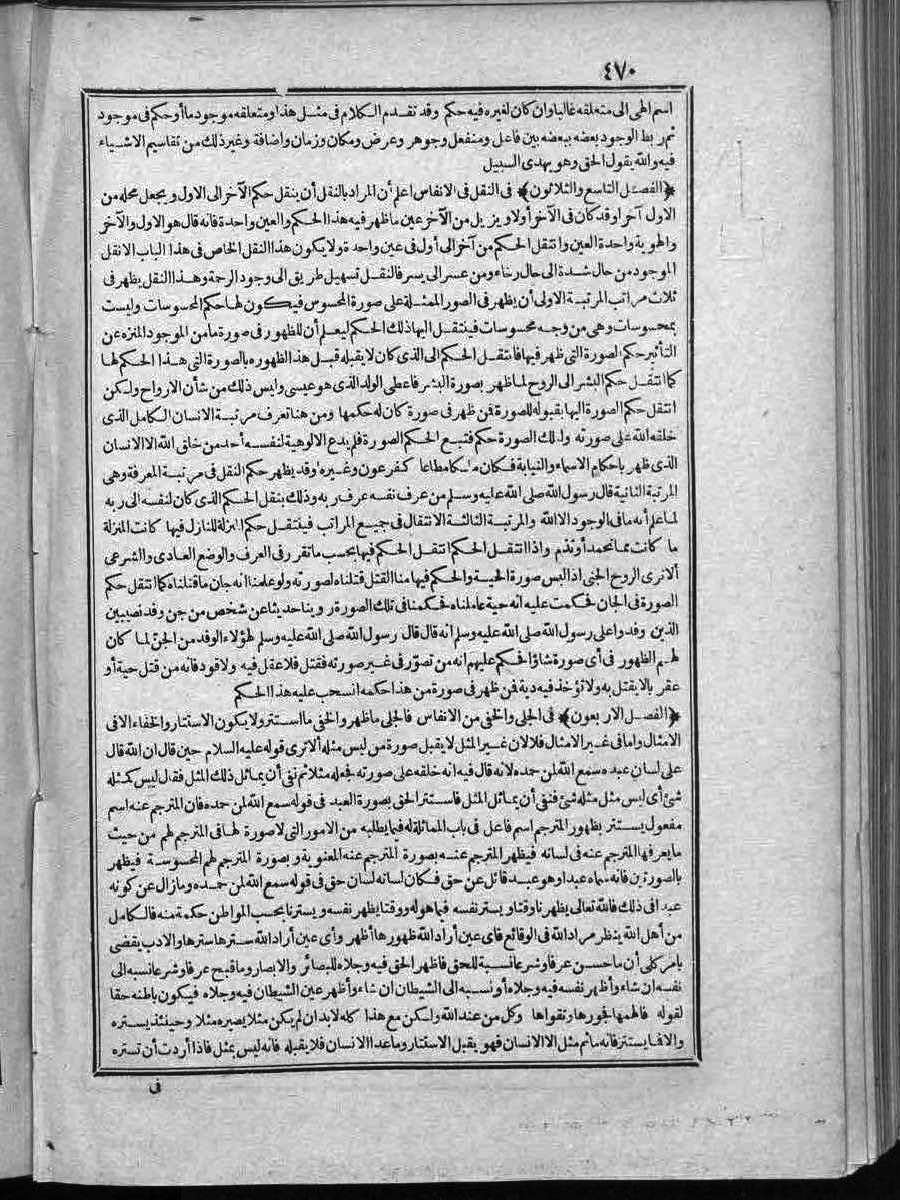 ٤٧٠
اسم الهي الى متعلقه غالبا وان كان لغيره فيه حكم وقد تقدم الكلام فى مثل هذا ومتعلقه موجود ما أو حكم فى موجود
ثم ربط الوجود بعضه ببعضه بين فاعل ومنفعل وجوهر وعرض ومكان وزمان واضافة وغير ذلك من تقاسيم الاشياء
فيه والله يقول الحق وهو يهدى السبيل
﴿الفصل التاسع والثلاثون﴾ فى النقل فى الانفاس اعلم أن المراد بالنقل أن ينقل حكم الآخر الى الاول ويجعل محله من
الاول آخرا وقد كان فى الآخر أولا ويزيل من الآخر عين ما ظهر فيه هذا الحكم والعين واحدة فانه قال هو الاول والآخر
والهوية واحدة العين وانتقل الحكم من آخر الى أول فى عين واحدة ولا يكون هذا النقل الخاص فى هذا الباب الا نقل
الموجود من حال شدة الى حال رخاء ومن عسر الى يسر فالنقل تسهيل طريق الى وجود الرحمة وهذا النقل يظهر فى
ثلاث مراتب المرتبة الاولى أن يظهر فى الصور الممثلة على صورة المحسوس فيكون لها حكم المحسوسات وليست
بمحسوسات وهى من وجه محسوسات فينتقل اليها ذلك الحكم ليعلم أن للظهور فى صورة ما من الموجود المنزه عن
التأثير حكم الصورة التى ظهر فيها فانتقل الحكم الى الذى كان لا يقبله قبل هذا الظهور بالصورة التى هذا الحكم لها
كما انتقل حكم البشر الى الروح لما ظهر بصورة البشر فاعطى الولد الذى هو عيسى وليس ذلك من شأن الارواح ولكن
انتقل حكم الصورة اليها بقبوله للصورة فمن ظهر فى صورة كان له حكمها ومن هنا تعرف مرتبة الانسان الكامل الذى
خلقه الله على صورته ولتلك الصورة حكم فتبع الحكم الصورة فلم يدع الالوهية لنفسه أحد من خلق الله الا الانسان
الذى ظهر باحكام الاسماء والنيابة فكان ملكا مطاعا كفرعون وغيره وقد يظهر حكم النقل فى مرتبة المعرفة وهى
المرتبة الثانية قال رسول الله صلى الله عليه وسلم من عرف نفسه عرف ربه وذلك بنقل الحكم الذى كان لنفسه الى ربه
لما علم أنه ما فى الوجود الا الله والمرتبة الثالثة الانتقال فى جميع المراتب فينتقل حكم المنزلة للنازل فيها كانت المنزلة
ما كانت مما تحمد أو تذم واذا انتقل الحكم انتقل الحكم فيها بحسب ما تقرر فى العرف والوضع العادى والشرعى
ألا نرى الروح الجنى اذا لبس صورة الحية والحكم فيها منا القتل قتلناه لصورته ولو علمنا انه جان ما قتلناه كما انتقل حكم
الصورة فى الجان فحكمت عليه انه حية عاملناه فحكمنا فى تلك الصورة روينا حديثا عن شخص من جن وفد نصيبين
الذين وفدوا على رسول الله صلى الله عليه وسلم انه قال قال رسول الله صلى الله عليه وسلم لهؤلاء الوفد من الجن لما كان
لهم الظهور فى أى صورة شاؤا فحكم عليهم انه من تصوّر فى غير صورته فقتل فلا عقل فيه ولا قود فانه من قتل حية أو
عقربا لا يقتل به ولا تؤخذ فيه دية فمن ظهر فى صورة من هذا حكمه انسحب عليه هذا الحكم
﴿الفصل الاربعون﴾ فى الجلى والخفى من الانفاس فالجلى ما ظهر والخفى ما استتر ولا يكون الاستتار والخفاء الا فى
الامثال واما فى غير الامثال فلا لان غير المثل لا يقبل صورة من ليس مثله ألا ترى قوله عليه السلام حين قال ان الله قال
على لسان عبده سمع الله لمن حمده لانه قال فيه انه خلقه على صورته فجعله مثلا ثم نفى أن يماثل ذلك المثل فقال ليس كمثله
شئ أى ليس مثل مثله شئ فنفى أن يماثل المثل فاستتر الحق بصورة العبد فى قوله سمع الله لمن حمده فان المترجم عنه اسم
مفعول يستتر بظهور المترجم اسم فاعل فى باب المماثلة له فيما يطلبه من الامور التى لا صورة لها فى المترجم لهم من حيث
ما يعرفها المترجم عنه فى لسانه فيظهر المترجم عنه بصورة المترجم عنه المعنوية وبصورة المترجم لهم المحسوسة فيظهر
بالصورتين فانه سماه عبدا وهو عبد قائل عن حق فكان لسانه لسان حق فى قوله سمع الله لمن حمده وما زال عن كونه
عبدا فى ذلك فالله تعالى يظهرنا وقتا ويستر نفسه فيما هو له ووقتا يظهر نفسه ويسترنا بحسب المواطن حكمة منه فالكامل
من أهل الله ينظر مراد الله فى الوقائع فاى عين أراد الله ظهورها أظهر وأى عين أراد الله سترها سترها والادب يقضى
بامر كلى أن ما حسن عرفا وشرعا نسبة للحق فاظهر الحق فيه وجلاه للبصائر والابصار وما قبح عرفا وشرعا نسبه الى
نفسه ان شاء وأظهر نفسه فيه وجلاه أو نسبه الى الشيطان ان شاء وأظهر عين الشيطان فيه وجلاه فيكون باطنه حقا
لقوله فالهمها فجورها وتقواها وكل من عند الله ولكن مع هذا كله لابد ان لم يكن مثلا يصيره مثلا وحينئذ يستره
والا فما يستتر فانه ما ثم مثل الا الانسان فهو يقبل الاستتار وما عدا الانسان فلا يقبله فانه ليس بمثل فاذا أردت أن تستره
فى